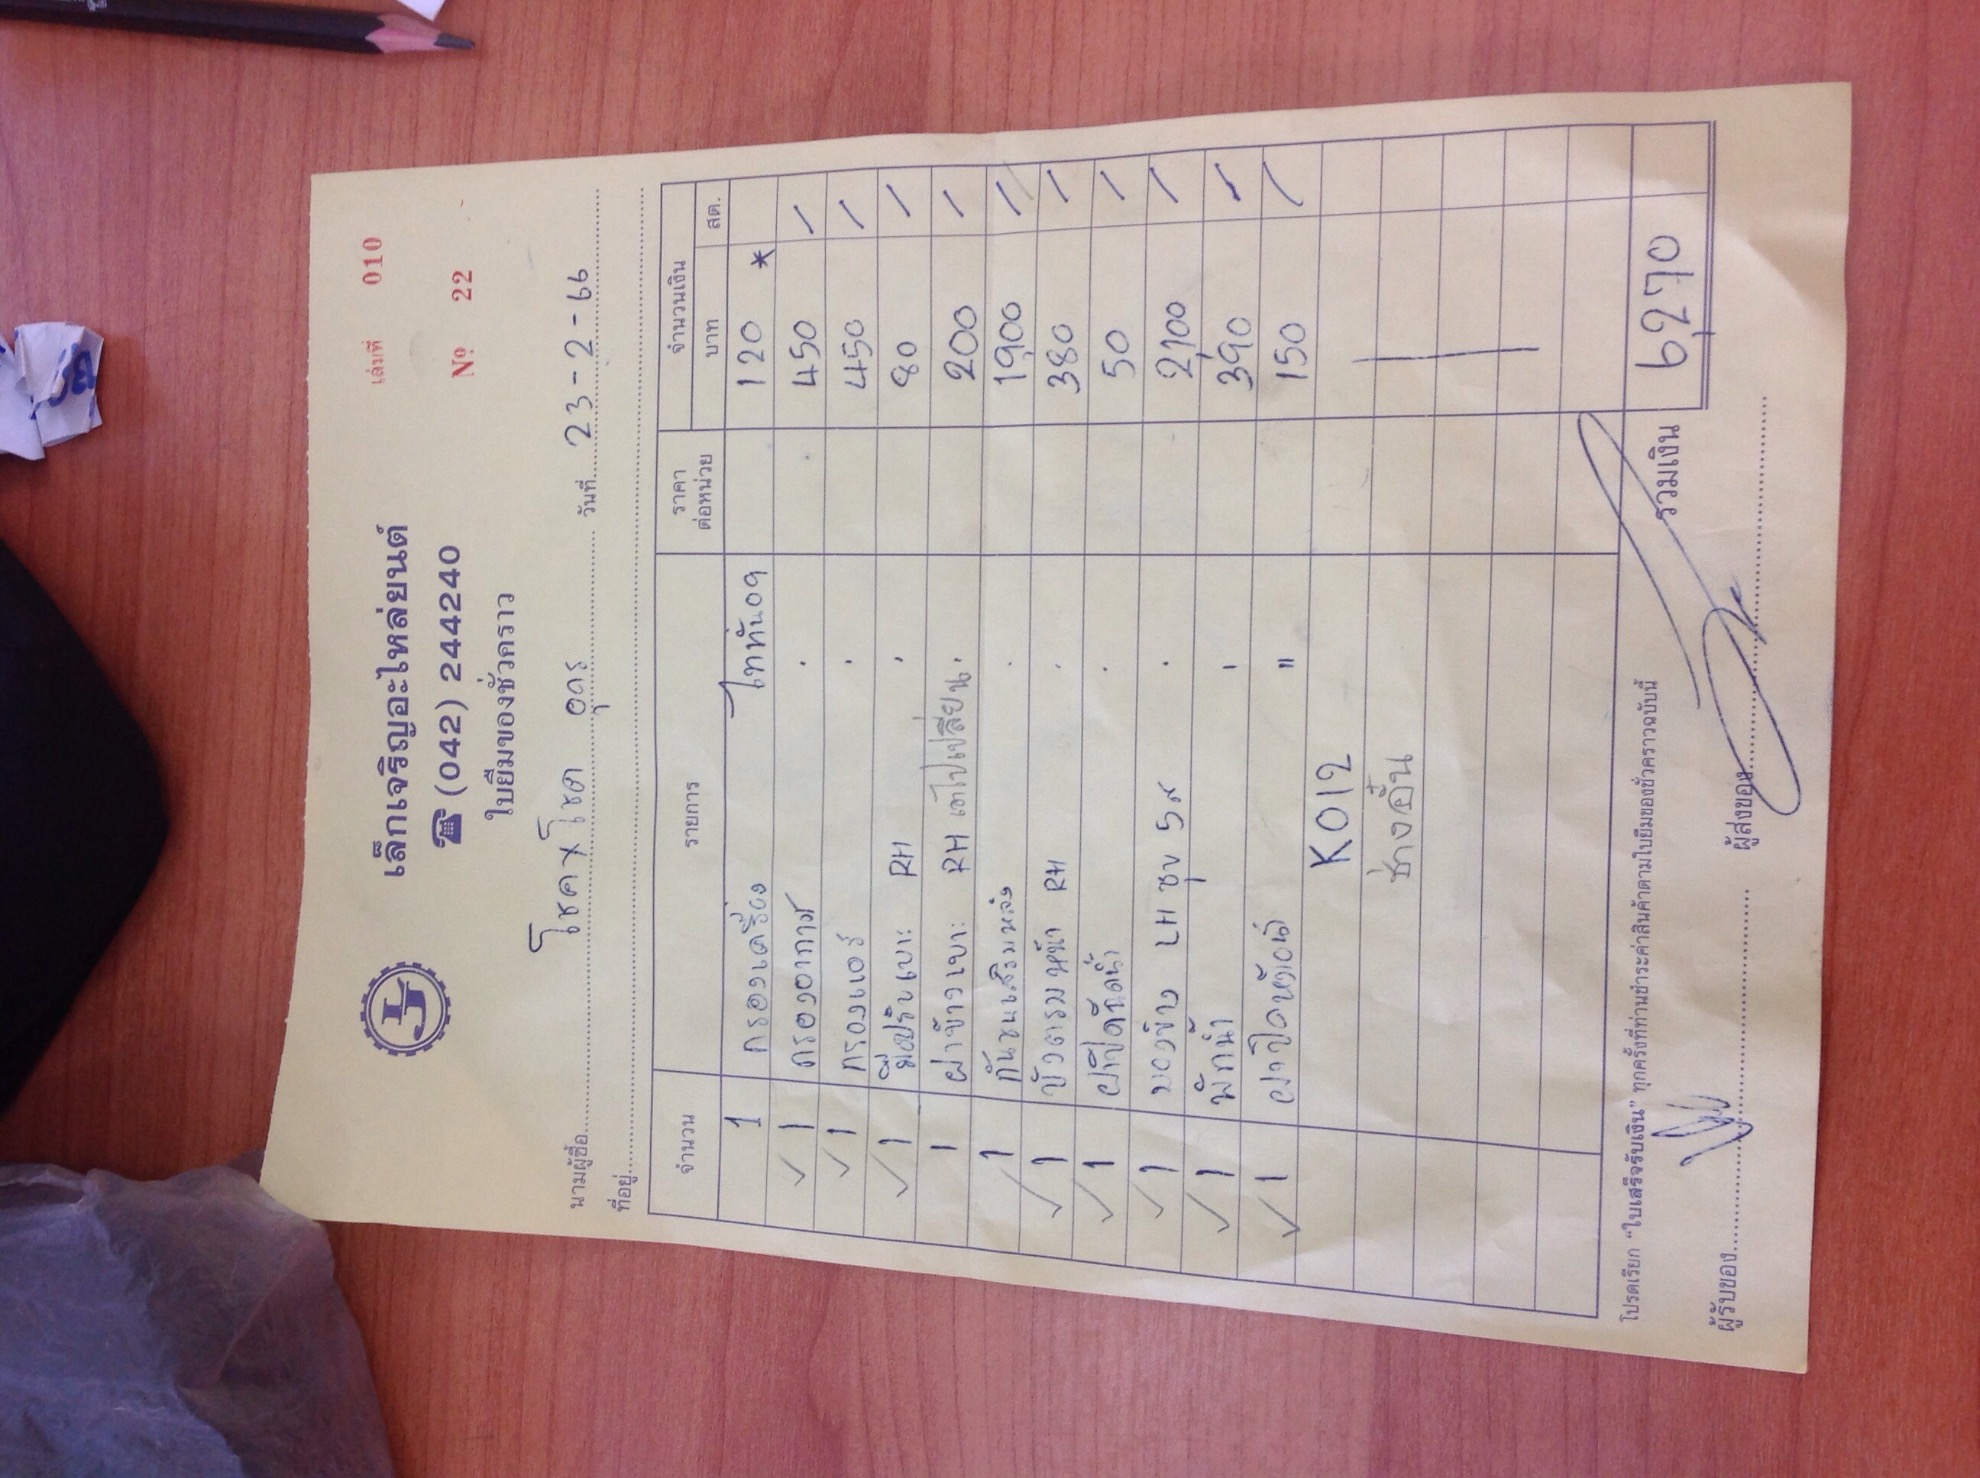 เล่มที่ 010
เล็กเจริญอะไหล่ยนต์
☎ (042) 244240
Nº 22
ใบยืมของชั่วคราว
นามผู้ซื้อ โชค x โชค อุดร วันที่ 23-2-66
ที่อยู่
จำนวน รายการ ราคาต่อหน่วย จำนวนเงิน บาท สต.
1 กรองเครื่อง ไททัน09 120 *
✓ 1 กรองอากาศ . 450 /
✓ 1 กรองแอร์ . 450 /
✓ 1 มือปรับเบาะ RH . 80 /
1 ฝาข้างเบาะ RH เอาไปเปลี่ยน . 200 /
✓ 1 กันชนเสริมหลัง . 1,900 /
✓ 1 RH . 380 /
✓ 1 ฝาปิดฉีดน้ำ . 50 /
✓ 1 มองข้าง LH ชุบ 5ส . 2,100 /
✓ 1 พักน้ำ ı 390 /
✓ 1 ฝาปิดหม้อน้ำ " 150 /
K012
ช่างอั๋น
รวมเงิน 6,270
โปรดเรียก "ใบเสร็จรับเงิน" ทุกครั้งที่ท่านชำระค่าสินค้าตามใบยืมของชั่วคราวฉบับนี้
ผู้รับของ ผู้ส่งของ